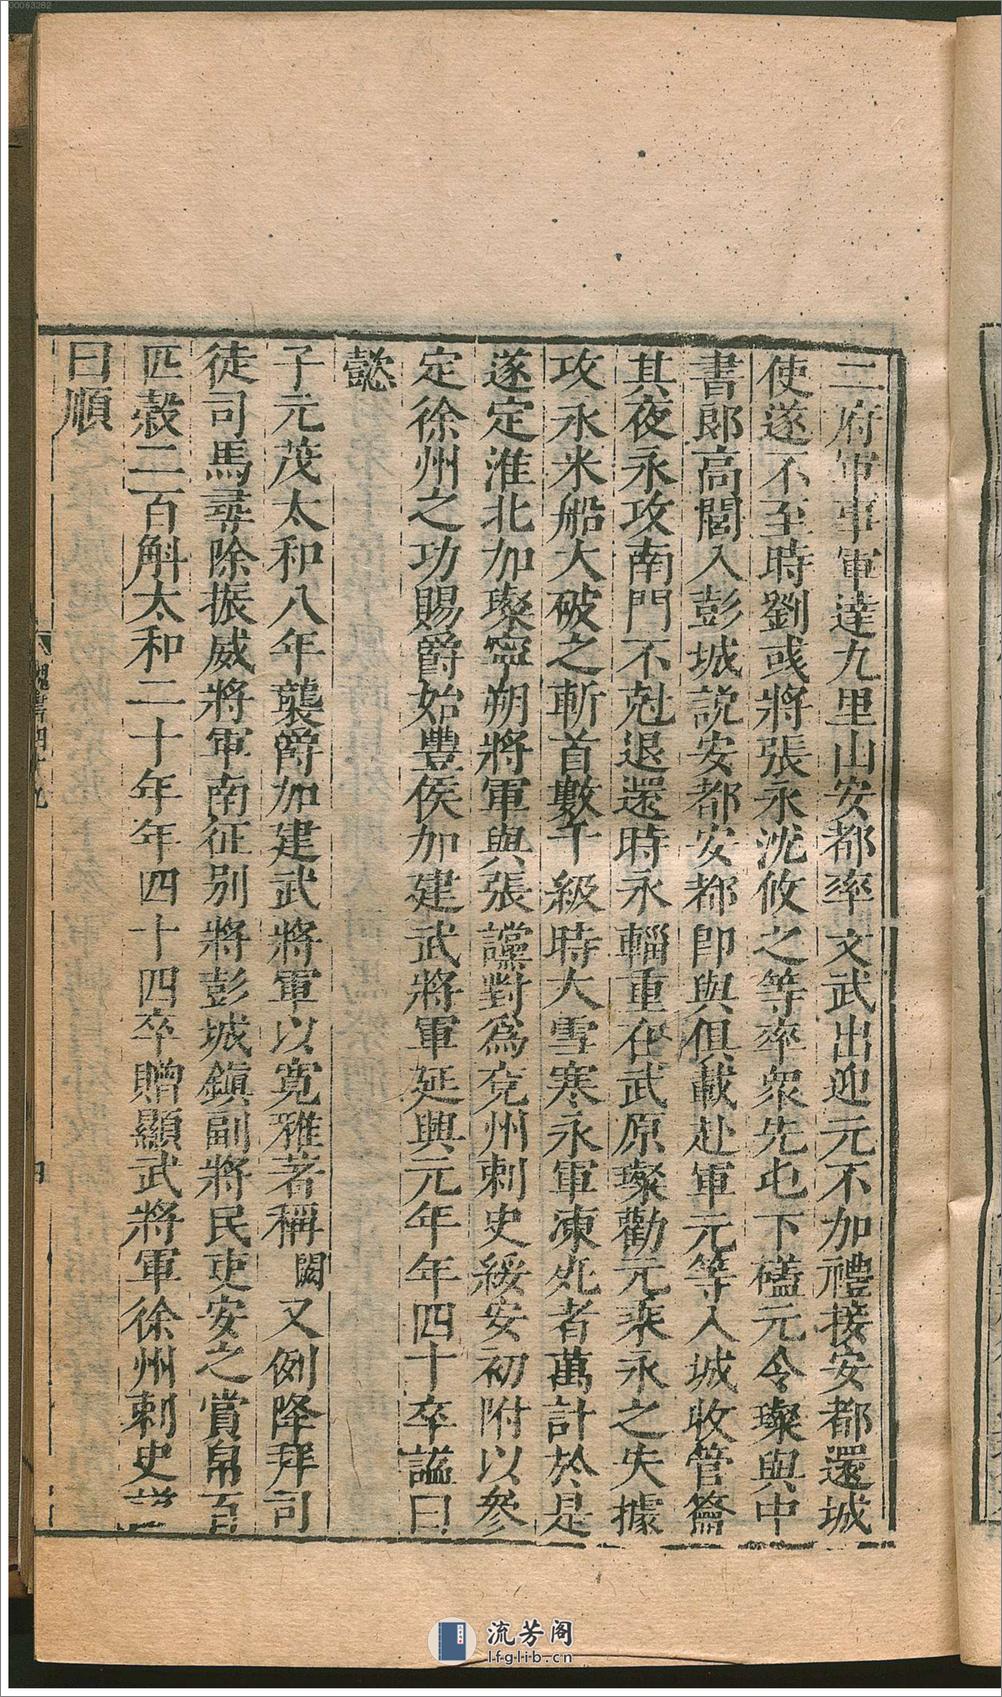 二府軍事軍達九里山安都率文武出迎元不加禮接安都還城
使遂不至時劉彧將張永沈攸之等率衆先屯下磕元令璨與中
書郎高閭入彭城說安都安都卽與俱載赴軍元等入城收管籥
其夜永攻南門不尅退還時永輜重在武原璨勸元乘永之失據
攻永米船大破之斬首數千級時大雪寒永軍凍死者萬計於是
遂定淮北加璨寧朔將軍與張讜對爲兗州刺史綏安初附以參
定徐州之功賜爵始豐侯加建武將軍延興元年年四十卒謚曰
懿
子元茂太和八年襲爵加建武將軍以寬雅著稱闕又例降拜司
徒司馬尋除振威將軍南征別將彭城鎭副將民吏安之賞帛百
匹穀二百斛太和二十年年四十四卒贈顯武將軍徐州刺史謚
曰順
魏書四十九
四
00063282
流芳阁
lfglib.cn